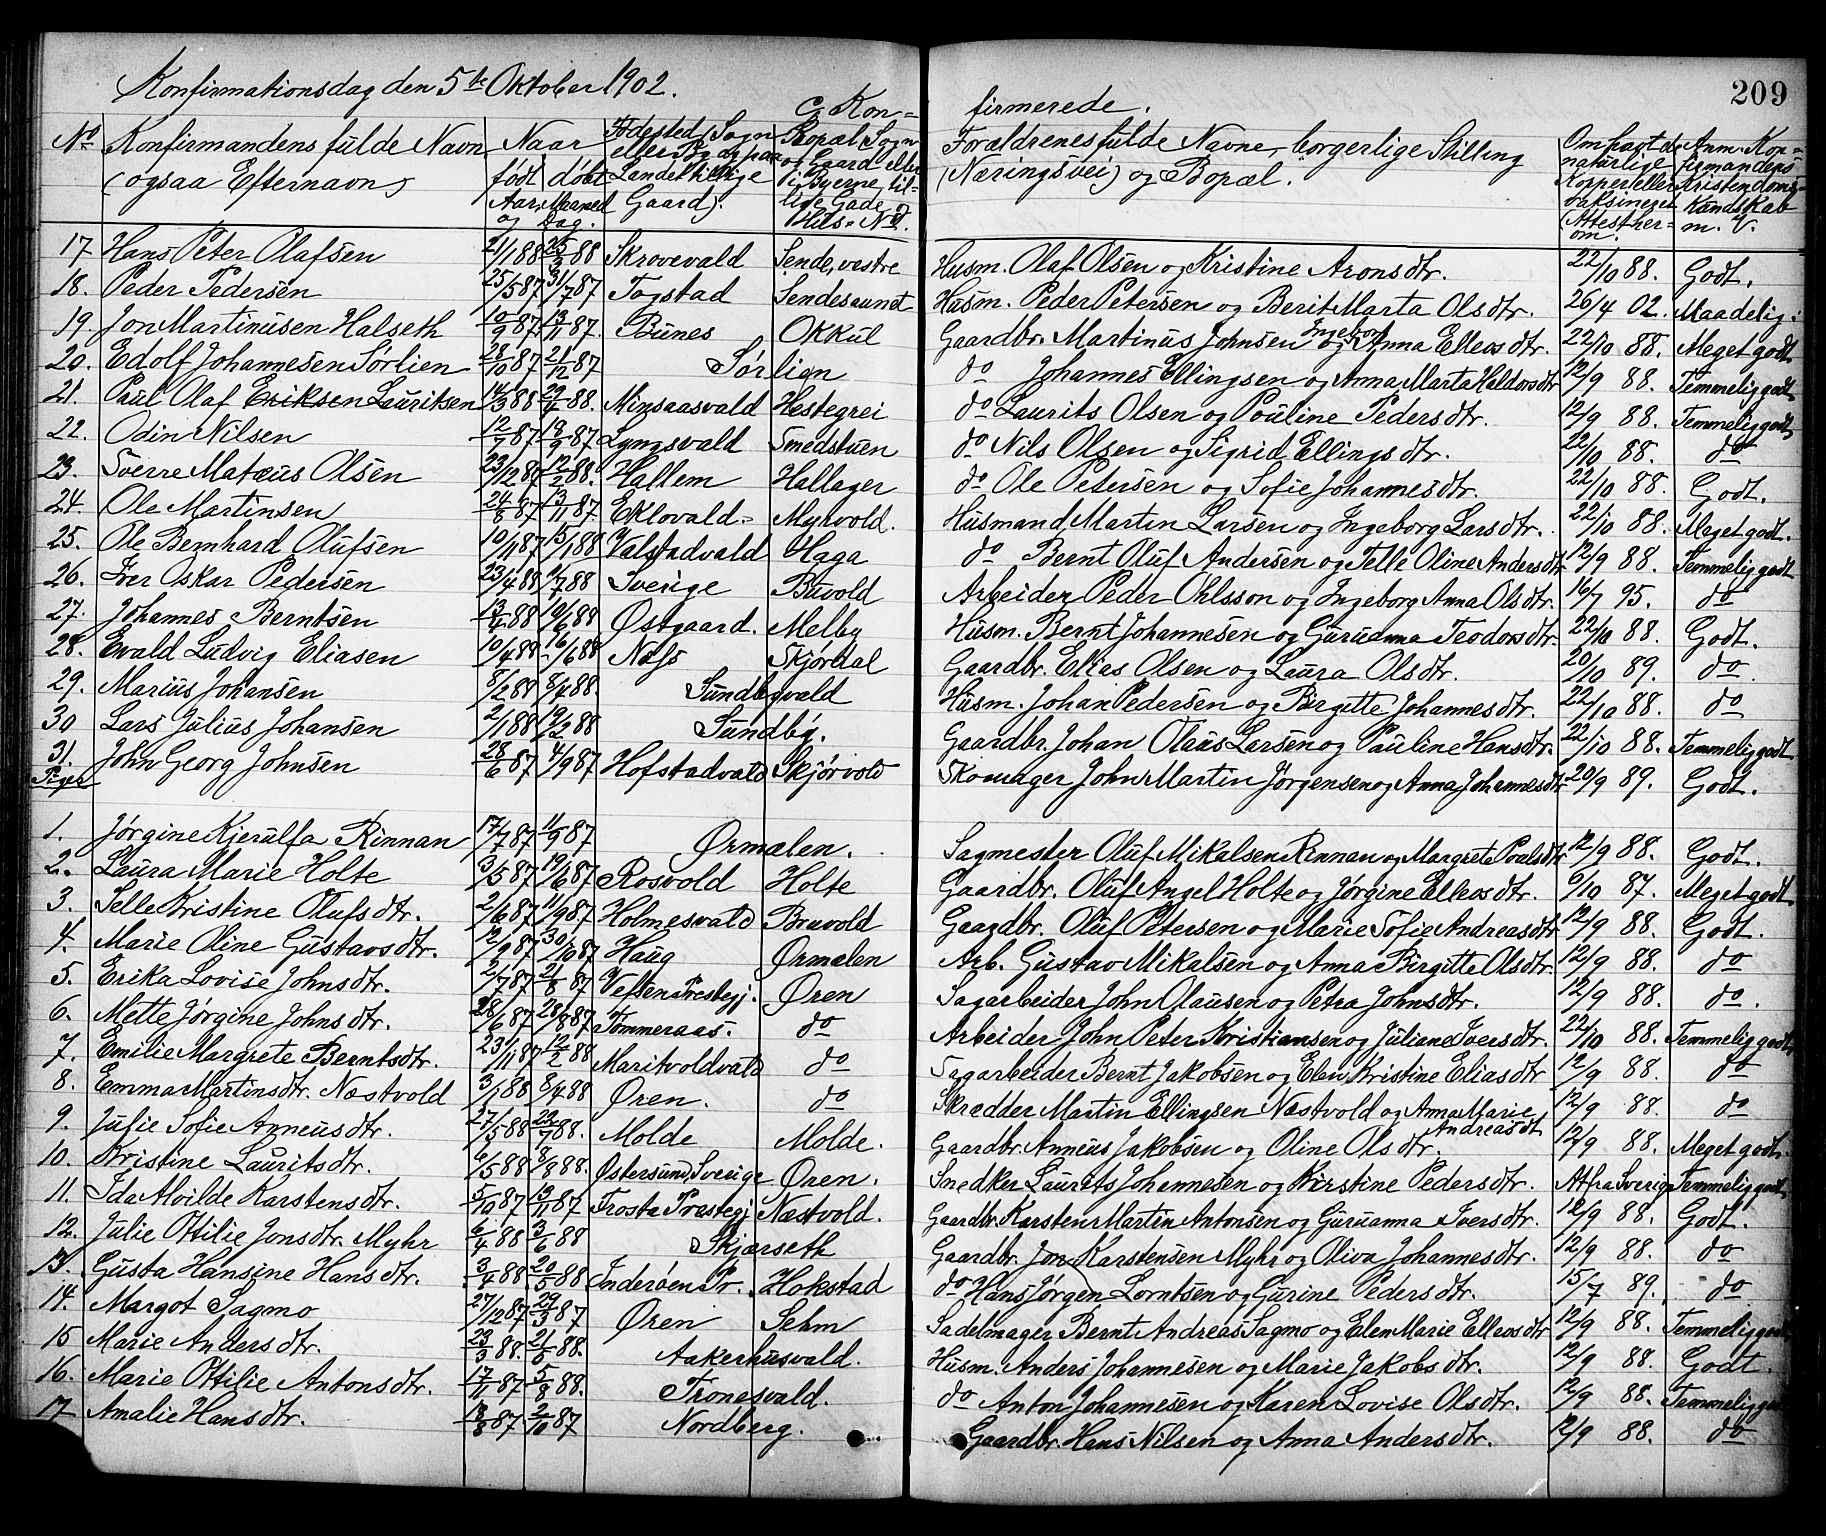 209
Konfirmationsdag den 5te Oktober 1902.
C, Kon= firmerede.
No Konfirmandens fulde Navn (ogsaa Efternavn) Naar født døbt Aar, Maaned og Dag. Fødested (Sogn eller By og paa Landet tillige Gaard). Bopæl Sogn og Gaard eller i Byerne tillige Gade, Hus-No. Forældrenes fulde Navne, borgerlige Stilling (Næringsvei) og Bopæl. Om havt de naturlige Kopper eller vaksineret (Attest her= om. Anm. Kon= firmandens Kristendoms= Kundskab m. V.
17 Hans Peter Olafsen 21/1 88 25/3 88 Skrovevald Sende, vestre Husm. Olaf Olsen og Kristine Aronsdtr. 22/10 88. Godt.
18. Peder Pedersen 25/5 87 31/7 87 Togstad Sendesaunet Husm. Peder Petersen og Berit Marta Olsdtr. 26/4 02. Maadelig.
19. Jon Martinusen Halseth 10/9 87 13/11 87. Bunes Okkul Gaardbr. Martinus Johnsen og Ingeborg Anna Ellevsdtr. 22/10 88. Meget godt
20. Edolf Johannesen Sørlien 28/10 87 21/12 87 Sørlien do Johannes Ellingsen og Anna Marta Haldorsdtr 12/9 88. Temmelig godt
21. Paul Olaf Eriksen Lauritsen 14/3 88 29/4 88. Minsaasvald Hestegrei do Laurits Olsen og Pouline Pedersdtr. 12/9 88. Temmelig godt
22. Odin Nilsen 12/7 87 18/9 87 Lyngsvald Smedstuen do Nils Olsen og Sigrid Ellingsdtr. 22/10 88. do
23. Sverre Matæus Olsen 23/12 87 12/2 88. Hallem Hallager do Ole Petersen og Sofie Johannesdtr. 22/10 88. Godt.
24. Ole Martinsen 24/8 87 13/11 87. Eklovald. Myrvold. Husmand Martin Larsen og Ingeborg Larsdtr. 22/10 88. Meget godt.
25. Ole Bernhard Olufsen 10/11 87 15/1 88 Valstadvald Haga do Bernt Oluf Andersen og Selle Oline Andersdtr 12/9 88. Temmelig godt
26. Iver Oskar Pedersen 23/4 88 1/7 88 Sverige Buvold Arbeider Peder Ohlsson og Ingeborg Anna Olsdtr. 16/7 95. do
27. Johannes Berntsen 13/4 88 10/6 88 Østgaard. Melby Husm. Bernt Johannesen og Guruanna Teodorsdtr. 22/10 88. Godt.
28. Evald Ludvig Eliasen 10/4 88 16/6 88 Næss Skjørdal Gaardbr. Elias Olsen og Laura Olsdtr. 20/10 89. do
29. Marius Johansen 8/2 88 8/4 88. Sundbyvald Husm. Johan Pedersen og Birgitte Johannesdtr. 22/10 88. do
30 Lars Julius Johansen 2/1 88 19/2 88 Sundby. Gaardbr. Johan Olaus Larsen og Pauline Hansdtr. 22/10 88. Temmelig godt
31. John Georg Johnsen 28/6 87 4/9 87 Hofstadvald Skjørvold Skomager John Martin Jørgensen og Anna Johannesdtr 20/9 89. Godt.
Piger
1. Jørgine Kjerulfa Rinnan 17/7 87 11/9 87 Ørmælen. Sagmester Oluf Mikalsen Rinnan og Margrete Povlsdtr 12/9 88. Godt.
2. Laura Marie Holte 3/5 87 19/6 87 Rosvold Holte Gaardbr. Oluf Angel Holte og Jørgine Ellevsdtr. 6/10 87. Meget godt.
3. Selle Kristine Olufsdtr. 2/6 87 11/9 87 Holmesvald Bruvold Gaardbr. Oluf Petersen og Marie Sofie Andreasdtr 12/9 88. Godt.
4. Marie Oline Gustavsdtr. 12/9 87 30/10 87 Haug Ørmælen Arb. Gustav Mikalsen og Anna Birgitte Olsdtr. 12/9 88. do
5. Erika Lovise Johnsdtr. 2/7 87 21/8 87 Vefsen Prestegj. Øren Sagarbeider John Olausen og Petra Johnsdtr. 12/9 88. do.
6. Mette Jørgine Johnsdtr. 28/6 87 28/8 87 Tømmeraas. do Arbeider John Peter Kristiansen og Juliane Iversdtr. 22/10 88. Temmelig godt
7. Emilie Margrete Berntsdtr. 23/11 87 12/2 88 Maritvoldvald do Sagarbeider Bernt Jakobsen og Elen Kristine Eliasdtr 12/9 88. do
8. Emma Martinsdtr. Næstvold 3/1 88 8/4 88 Øren. do Skrædder Martin Ellingsen Næstvold og Anna Marie Andreasdt 12/9 88. do
9. Julie Sofie Anneusdtr. 27/5 88 22/7 88. Molde Molde. Gaardbr. Anneus Jakobsen og Oline Olsdtr. 12/9 88. Meget godt.
10. Kristine Lauritsdtr. 6/5 88 8/8 88. Østersund, Sverige Øren. Snedker Laurits Johannesen og Kirstine Pedersdtr. Att fra Sverig Temmelig godt
11. Ida Alvilde Karstensdtr. 5/10 87 13/11 87 Frosta Præstegj Næstvold. Gaardbr. Karsten Martin Antonsen og Guruanna Iversdtr. 12/9 88. Godt.
12. Julie Ottilie Jonsdtr. Myhr 6/4 88 3/6 88 Skjærseth Gaardbr. Jon Karstensen Myhr og Oliva Johannesdtr. 12/9 88. do
13. Gusta Hansine Hansdtr. 3/4 88 20/5 88 Inderøen Pr. Hokstad do Hans Jørgen Lorntsen og Gurine Pedersdtr. 15/7 89. do
14. Margot Sagmo 27/12 87 29/3 87 Øren Sehm Sadelmager Bernt Andreas Sagmo og Elen Marie Ellevsdtr 12/9 88. Temmelig godt
15 Marie Andersdtr. 23/3 88. 21/5 88. Aakerhusvald. Husm. Anders Johannesen og Marie Jakobsdtr. 12/9 88. Godt.
16. Marie Ottilie Antonsdtr. 17/11 87 5/8 88. Tronesvald. do Anton Johannesen og Karen Lovise Olsdtr. 12/9 88. Temmelig
17 Amalie Hansdtr. 13/8 87 2/10 87 Nordberg. Gaardbr. Hans Nilsen og Anna Andersdtr. 12/9 88. do